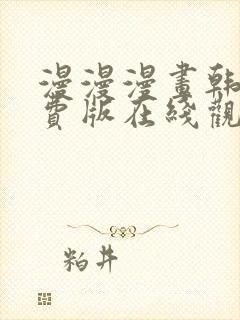 漫漫漫畫韩
費版在綫觀
粕井